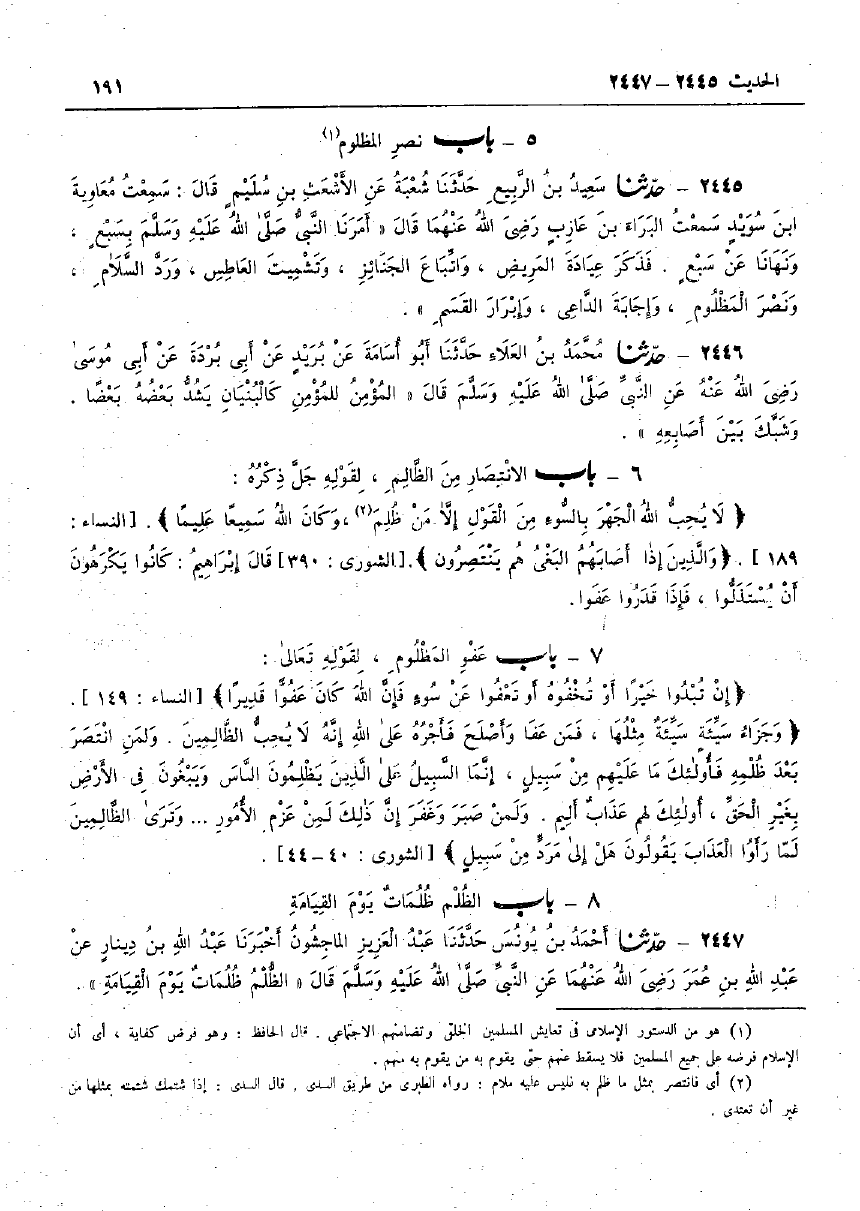 الحديث ٢٤٤٥ – ٢٤٤٧ ١٩١
٥ – باب نصرِ المظلوم(١)
٢٤٤٥ – حدّثنا سَعِيدُ بنُ الرَّبِيعِ حَدَّثَنَا شُعْبَةُ عَنِ الأَشْعَثِ بنِ سُلَيْمٍ قَالَ : سَمِعْتُ مُعَاوِيةَ
ابنَ سُوَيْدٍ سَمِعْتُ البَرَاءَ بنَ عَازِبٍ رَضِىَ اللهُ عَنْهُمَا قَالَ « أَمَرَنَا النَّبىُّ صَلَّىٰ اللهُ عَلَيْهِ وَسَلَّمَ بِسَبْعٍ ،
وَنَهَانَا عَنْ سَبْعٍ . فَذَكَرَ عِيَادَةَ المَرِيضِ ، وَاتِّبَاعَ الجَنَائِزِ ، وَتَشْمِيتَ العَاطِسِ ، وَرَدَّ السَّلَامِ ،
وَنَصْرَ الْمَظْلُومِ ، وَإِجَابَةَ الدَّاعِى ، وَإِبْرَارَ القَسَمِ » .
٢٤٤٦ – حدّثنا مُحَمَّدُ بنُ العَلَاءِ حَدَّثَنَا أَبُو أُسَامَةَ عَنْ بُرَيْدٍ عَنْ أَبِى بُرْدَةَ عَنْ أَبِى مُوسَىٰ
رَضِىَ اللهُ عَنْهُ عَنِ النَّبىِّ صَلَّىٰ اللهُ عَلَيْهِ وَسَلَّمَ قَالَ « المُؤْمِنُ للمُؤْمِنِ كَالْبُنْيَانِ يَشُدُّ بَعْضُهُ بَعْضًا .
وَشَبَّكَ بَيْنَ أَصَابِعِهِ » .
٦ – باب الانْتِصَارِ مِنَ الظَّالِمِ ، لِقَوْلِهِ جَلَّ ذِكْرُهُ :
﴿ لَا يُحِبُّ اللهُ الْجَهْرَ بِالسُّوءِ مِنَ الْقَوْلِ إِلَّا مَنْ ظُلِمَ(٢) ، وَكَانَ اللهُ سَمِيعًا عَلِيمًا ﴾ . [النساء :
١٨٩ ] . ﴿وَالَّذِينَ إِذَا أَصَابَهُمُ البَغْىُ هُم يَنْتَصِرُون ﴾.[الشورى : ٣٩٠] قَالَ إِبْرَاهِيمُ : كَانُوا يَكْرَهُونَ
أَنْ يُسْتَذَلُّوا ، فَإِذَا قَدَرُوا عَفَوا.
٧ – باب عَفْوِ المَظْلُومِ ، لِقَوْلِهِ تَعَالىٰ :
﴿إِنْ تُبْدُوا خَيْرًا أَوْ تُخْفُوهُ أَو تَعْفُوا عَنْ سُوءٍ فَإِنَّ اللهَ كَانَ عَفُوًّا قَدِيرًا﴾ [النساء : ١٤٩ ] .
﴿ وَجَزَاءُ سَيِّئَةٍ سَيِّئَةٌ مِثْلُهَا ، فَمَن عَفَا وَأَصْلَحَ فَأَجْرُهُ عَلىٰ اللهِ إِنَّهُ لَا يُحِبُّ الظَّالِمِينَ . وَلَمَنِ انْتَصَرَ
بَعْدَ ظُلْمِهِ فَأُولَٰئِكَ مَا عَلَيْهِم مِنْ سَبِيلٍ ، إِنَّمَا السَّبِيلُ عَلىٰ الَّذِينَ يَظْلِمُونَ النَّاسَ وَيَبْغُونَ فِى الأَرْضِ
بِغَيْرِ الْحَقِّ ، أُولَٰئِكَ لهم عَذَابٌ أَلِيم . وَلَمنْ صَبَرَ وَغَفَرَ إِنَّ ذَٰلِكَ لَمِنْ عَزْمِ الأُمُورِ ... وَتَرَىٰ الظَّالِمِينَ
لَمَّا رَأَوُا الْعَذَابَ يَقُولُونَ هَلْ إِلىٰ مَرَدٍّ مِنْ سَبِيلٍ ﴾ [الشورى : ٤٠ –٤٤] .
٨ – باب الظُّلْم ظُلُمَاتٌ يَوْمَ القِيَامَةِ
٢٤٤٧ – حدّثنا أَحْمَدُ بنُ يُونُسَ حَدَّثَنَا عَبْدُ الْعَزِيزِ الماجِشُونُ أَخْبَرَنَا عَبْدُ اللهِ بنُ دِينارٍ عنْ
عَبْدِ اللهِ بنِ عُمَرَ رَضِىَ اللهُ عَنْهُمَا عَنِ النَّبىِّ صَلَّىٰ اللهُ عَلَيْهِ وَسَلَّمَ قَالَ « الظُّلْمُ ظُلُمَاتٌ يَوْمَ الْقِيَامَةِ » .
(١) هو من الدستور الإسلامى فى تعايش المسلمين الخلقى وتضامنهم الاجتماعى . قال الحافظ : وهو فرض كفاية ، أى أن
الإسلام فرضه على جميع المسلمين فلا يسقط عنهم حتى يقوم به من يقوم به منهم .
(٢) أى فانتصر بمثل ما ظلم به فليس عليه ملام : رواه الطبرى من طريق السدى . قال السدى : إذا شتمك شتمته بمثلها من
غير أن تعتدى .